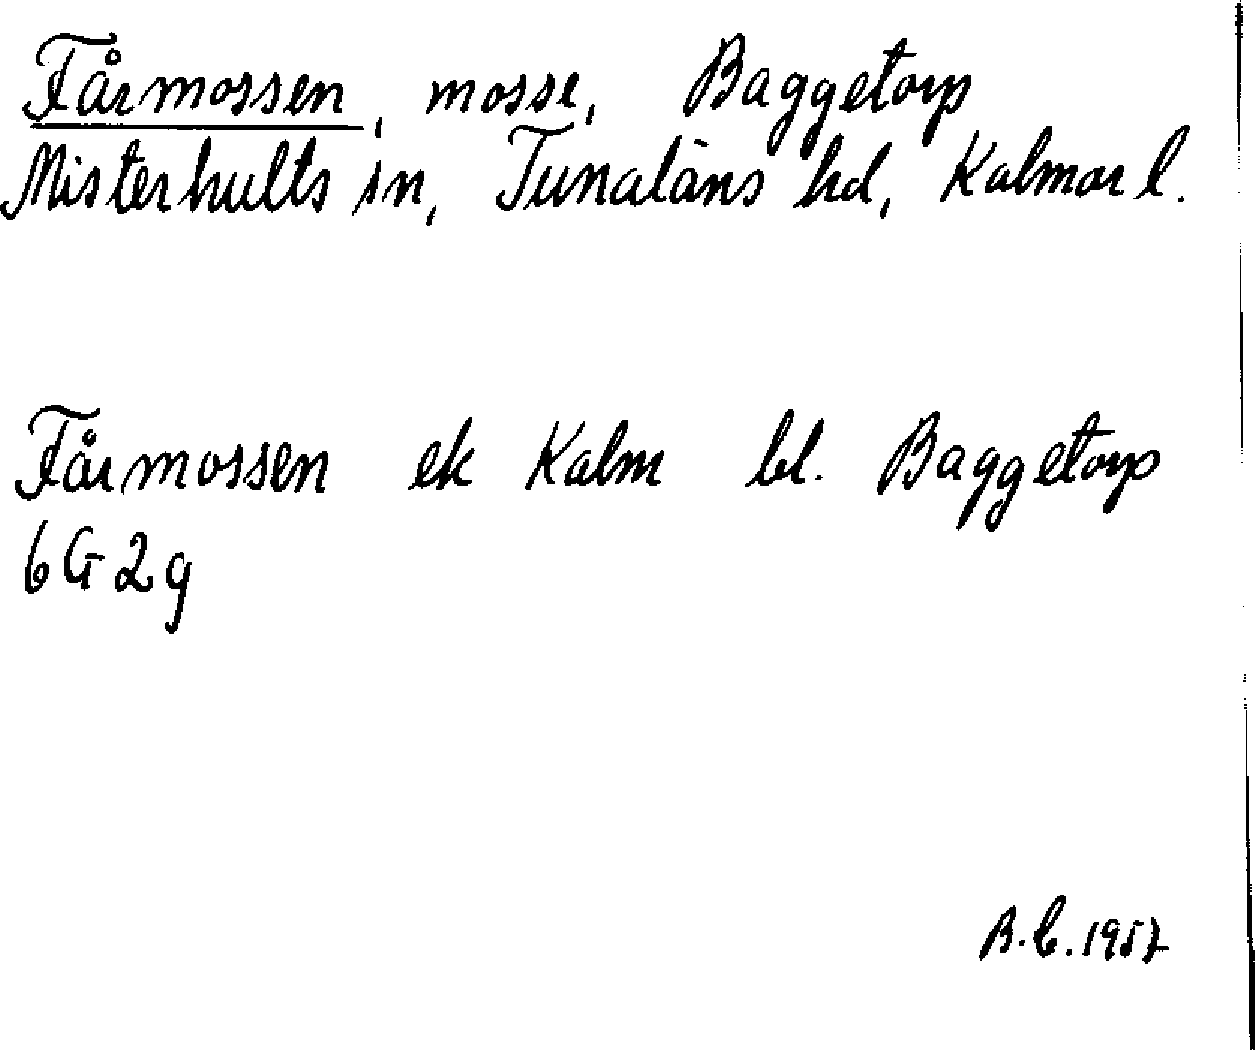 Fårmossen, mosse, Baggetorp
Misterhults sn, Tunaläns hd, Kalmar l.
Fårmossen ek Kalm bl. Baggetorp
6G2g
B.C. 1957